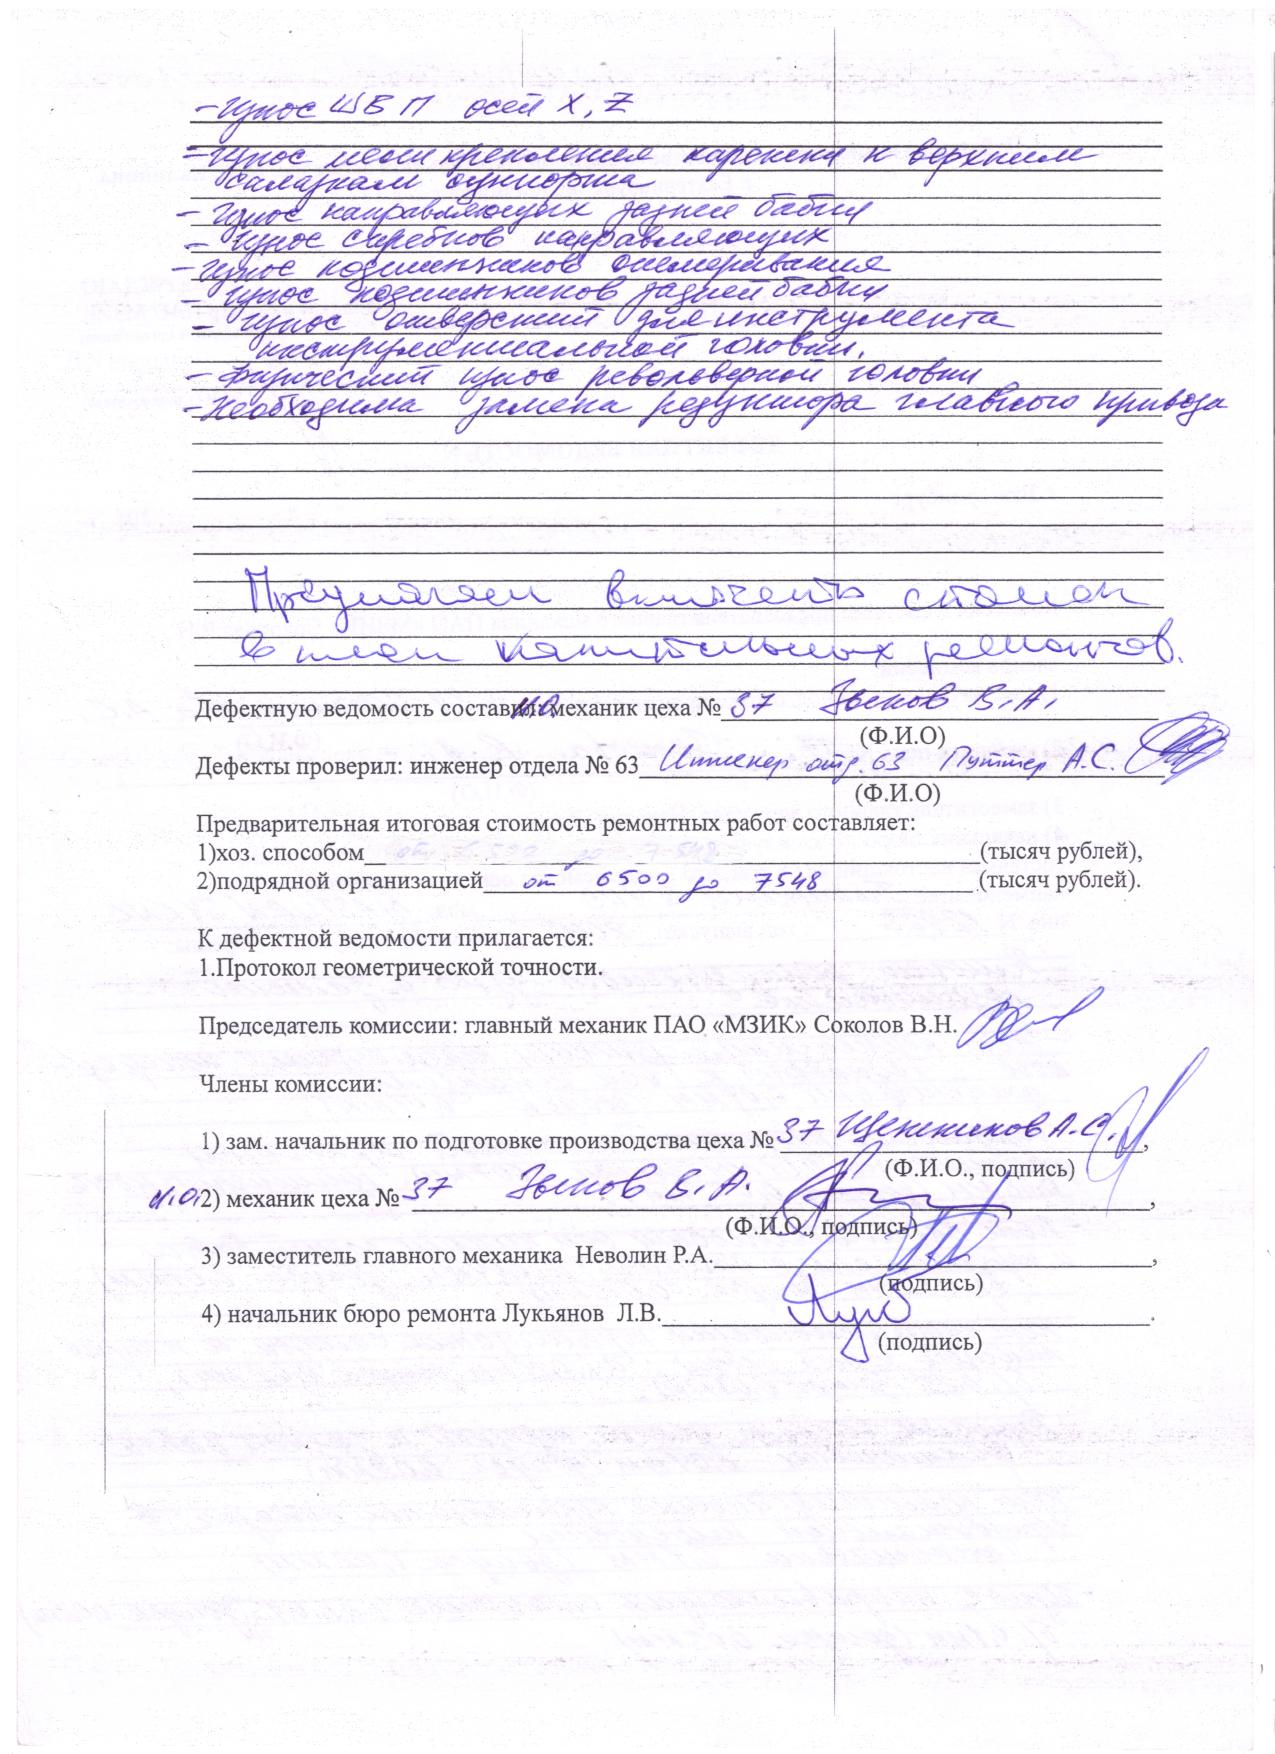 - Износ ШВП осей X, Z
- Износ места крепления каретки к верхним
салазкам суппорта
- Износ направляющих задней бабки
- Износ скребков направляющих
- Износ подшипников
- Износ подшипников задней бабки
- Износ отверстий для инструмента
инструментальной головки.
- Физический износ револьверной головки
- Необходима замена редуктора главного привода
Предлагаем включить станок
в план капитальных ремонтов.
Дефектную ведомость составил: и.о. механик цеха № 37 Зыков В.А.
(Ф.И.О)
Дефекты проверил: инженер отдела № 63 Инженер отд. 63 Путтер А.С.
(Ф.И.О)
Предварительная итоговая стоимость ремонтных работ составляет:
1)хоз. способом от 6500 до 7548 (тысяч рублей),
2)подрядной организацией от 6500 до 7548 (тысяч рублей).
К дефектной ведомости прилагается:
1.Протокол геометрической точности.
Председатель комиссии: главный механик ПАО «МЗИК» Соколов В.Н.
Члены комиссии:
1) зам. начальник по подготовке производства цеха № 37 А.С.,
(Ф.И.О., подпись)
и.о. 2) механик цеха № 37 Зыков В.А.,
(Ф.И.О., подпись)
3) заместитель главного механика Неволин Р.А.,
(подпись)
4) начальник бюро ремонта Лукьянов Л.В.
(подпись)